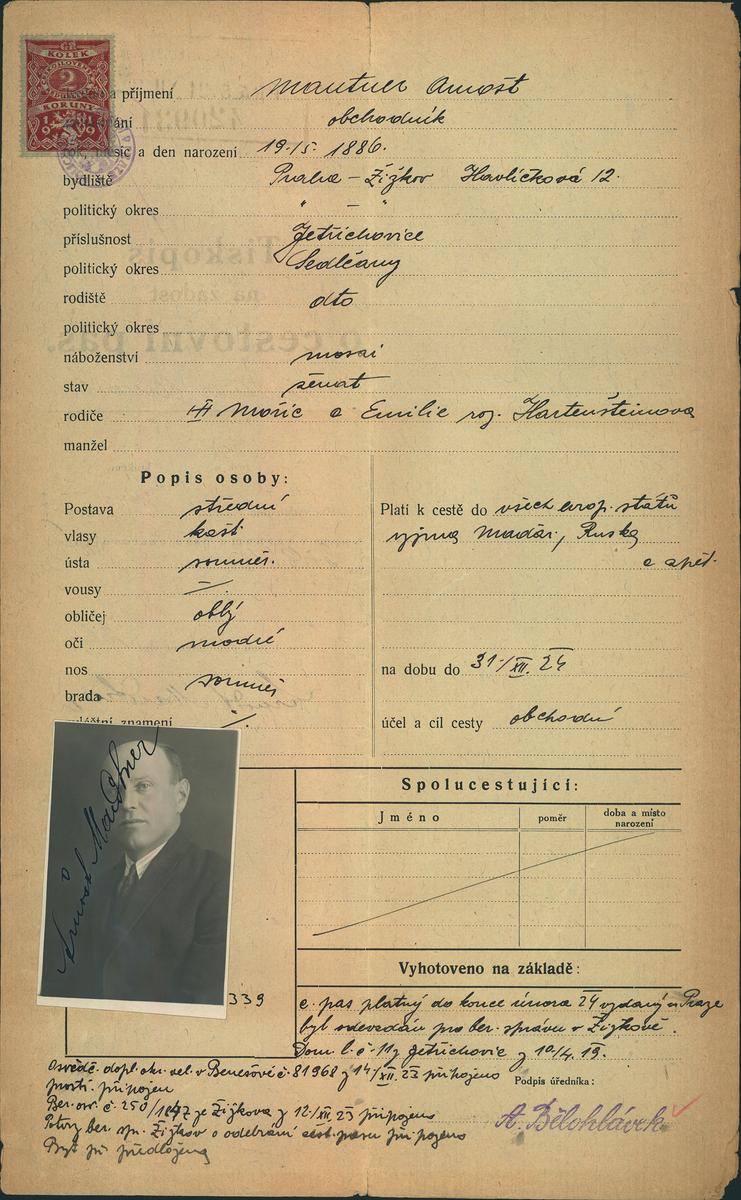 KOLEK
2
KORUNY
1919
a příjmení Mautner Arnošt
obchodník
měsíc a den narození 19./5. 1886.
bydliště Praha – Žižkov Havlíčkova 12.
politický okres " – "
příslušnost Jetřichovice
politický okres Sedlčany
rodiště dto
politický okres
náboženství mosai
stav ženat
rodiče Mořic a Emilie roz. Hartensteinova
manžel
Popis osoby:
Postava střední
vlasy kašt
ústa souměr.
vousy –/.
obličej oblý
oči modré
nos souměr
brada
zvláštní znamení ./.
Platí k cestě do všech evrop. států
vyjma Maďar., Ruska
a zpět.
na dobu do 31./XII. 24
účel a cíl cesty obchodní
Arnošt Mautner
339
Spolucestující:
Jméno poměr doba a místo narození
Vyhotoveno na základě:
c. pas platný do konce února 24 vydaný v Praze
byl odevzdán pro ber. správu v Žižkově.
Dom. l. č. 117 Jetřichovic z 10/4. 19.
Osvědč. dopl. okr. vel. v Benešově č. 81968 z 14/XII. 23 připojeno
připojen
Ber. ze Žižkova z 12/XII. 23 připojeno
Potvrz ber. sp. Žižkov o odebrání cest. pasu připojeno
předložena
Podpis úředníka:
A. Bělohlávek